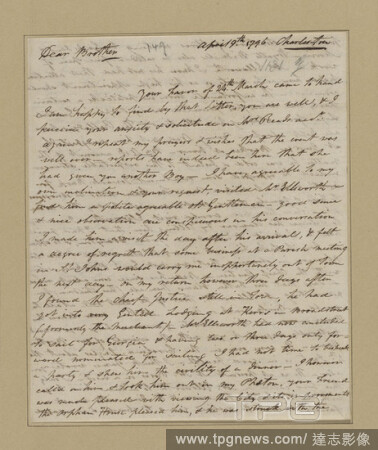 April 19th. 1796 - Charleston
Dear Brother
Your favor of 24th March, came to hand
I am happy to find by that Letter, you are well, & I
perceive your anxiety & solicitude in
repeat my prayers & wishes that the event was
well over - reports have indeed been here that she
had given you another Boy - I have, agreeable to my
own inclination & your request, visited Mr Ellsworth -
find him a polite agreeable old Gentleman - good sense
& nice observation are conspicuous in his conversation
I made him a visit the day after his arrival, & felt
a degree of regret that some business at a Parish meeting
in St Johns would carry me out of Town
the next day - on my return however three days after
I found the Chief Justice still in Town, he had
got into very Genteel Lodging at
(formerly the Merchant) - Mr Ellsworth
to sail for Georgia & having two or three days only
I had not time to
a party & shew him the civility of a Dinner - I however
called on him & took him out in my Phaeton, your Friend
was much pleased with viewing the City
the orphan House pleased him, & he was struck
www.tpgnews.com / 達志影像